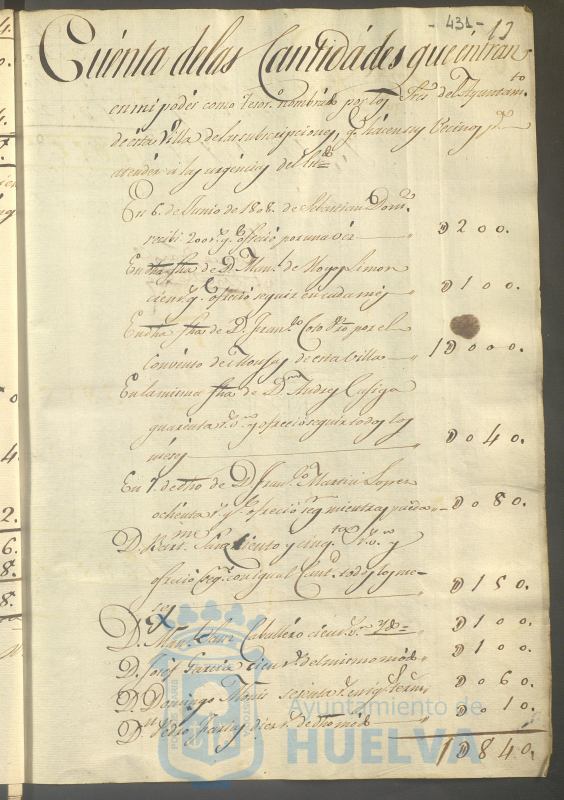 - 431 - 12
Cuenta de las Cantidades que entran
en mi poder como Tesor.o nombrado por los Sres del Ayuntam.to
de esta Villa de las subscripciones q.e hacen sus Vecinos p.a
atender a las urgencias del
En 6. de Junio de 1808. de Sebastian Dom.z
recibi 200 r.s q.e ofreció por una vez " D200.
En dha fha de D.n Man.l de Mora y Limon
cien r.s q.e ofreció seguir en cada mes " D100.
En dha fha de D. Fran.co por el
Convento de Monjas de esta Villa 1D000.
En la misma fha de D.n Andres Casiga
quarenta r.s v.n y ofreció seguir todos los
meses D040.
En 7. de dho de D. Fran.co Martin Lopez
ochenta r.s q.e ofreció seg.r mientras pueda D080.
D. Bart.me ciento y cinq.ta r.s v.n y
ofreció seg.r con igual Cant.d todos los me-
ses D150.
D.n Man.l Saenz Caballero cien r.s v.n D100.
D. Josef Garcia cien r.s del mismo modo D100.
D. Domingo sesenta r.s en iguales term.s D060.
D.n Pedro Farias diez r.s de dho modo D010.
1D840.
4.
0.
4.
2.
6.
8.
8.
Ayuntamiento de
HUELVA